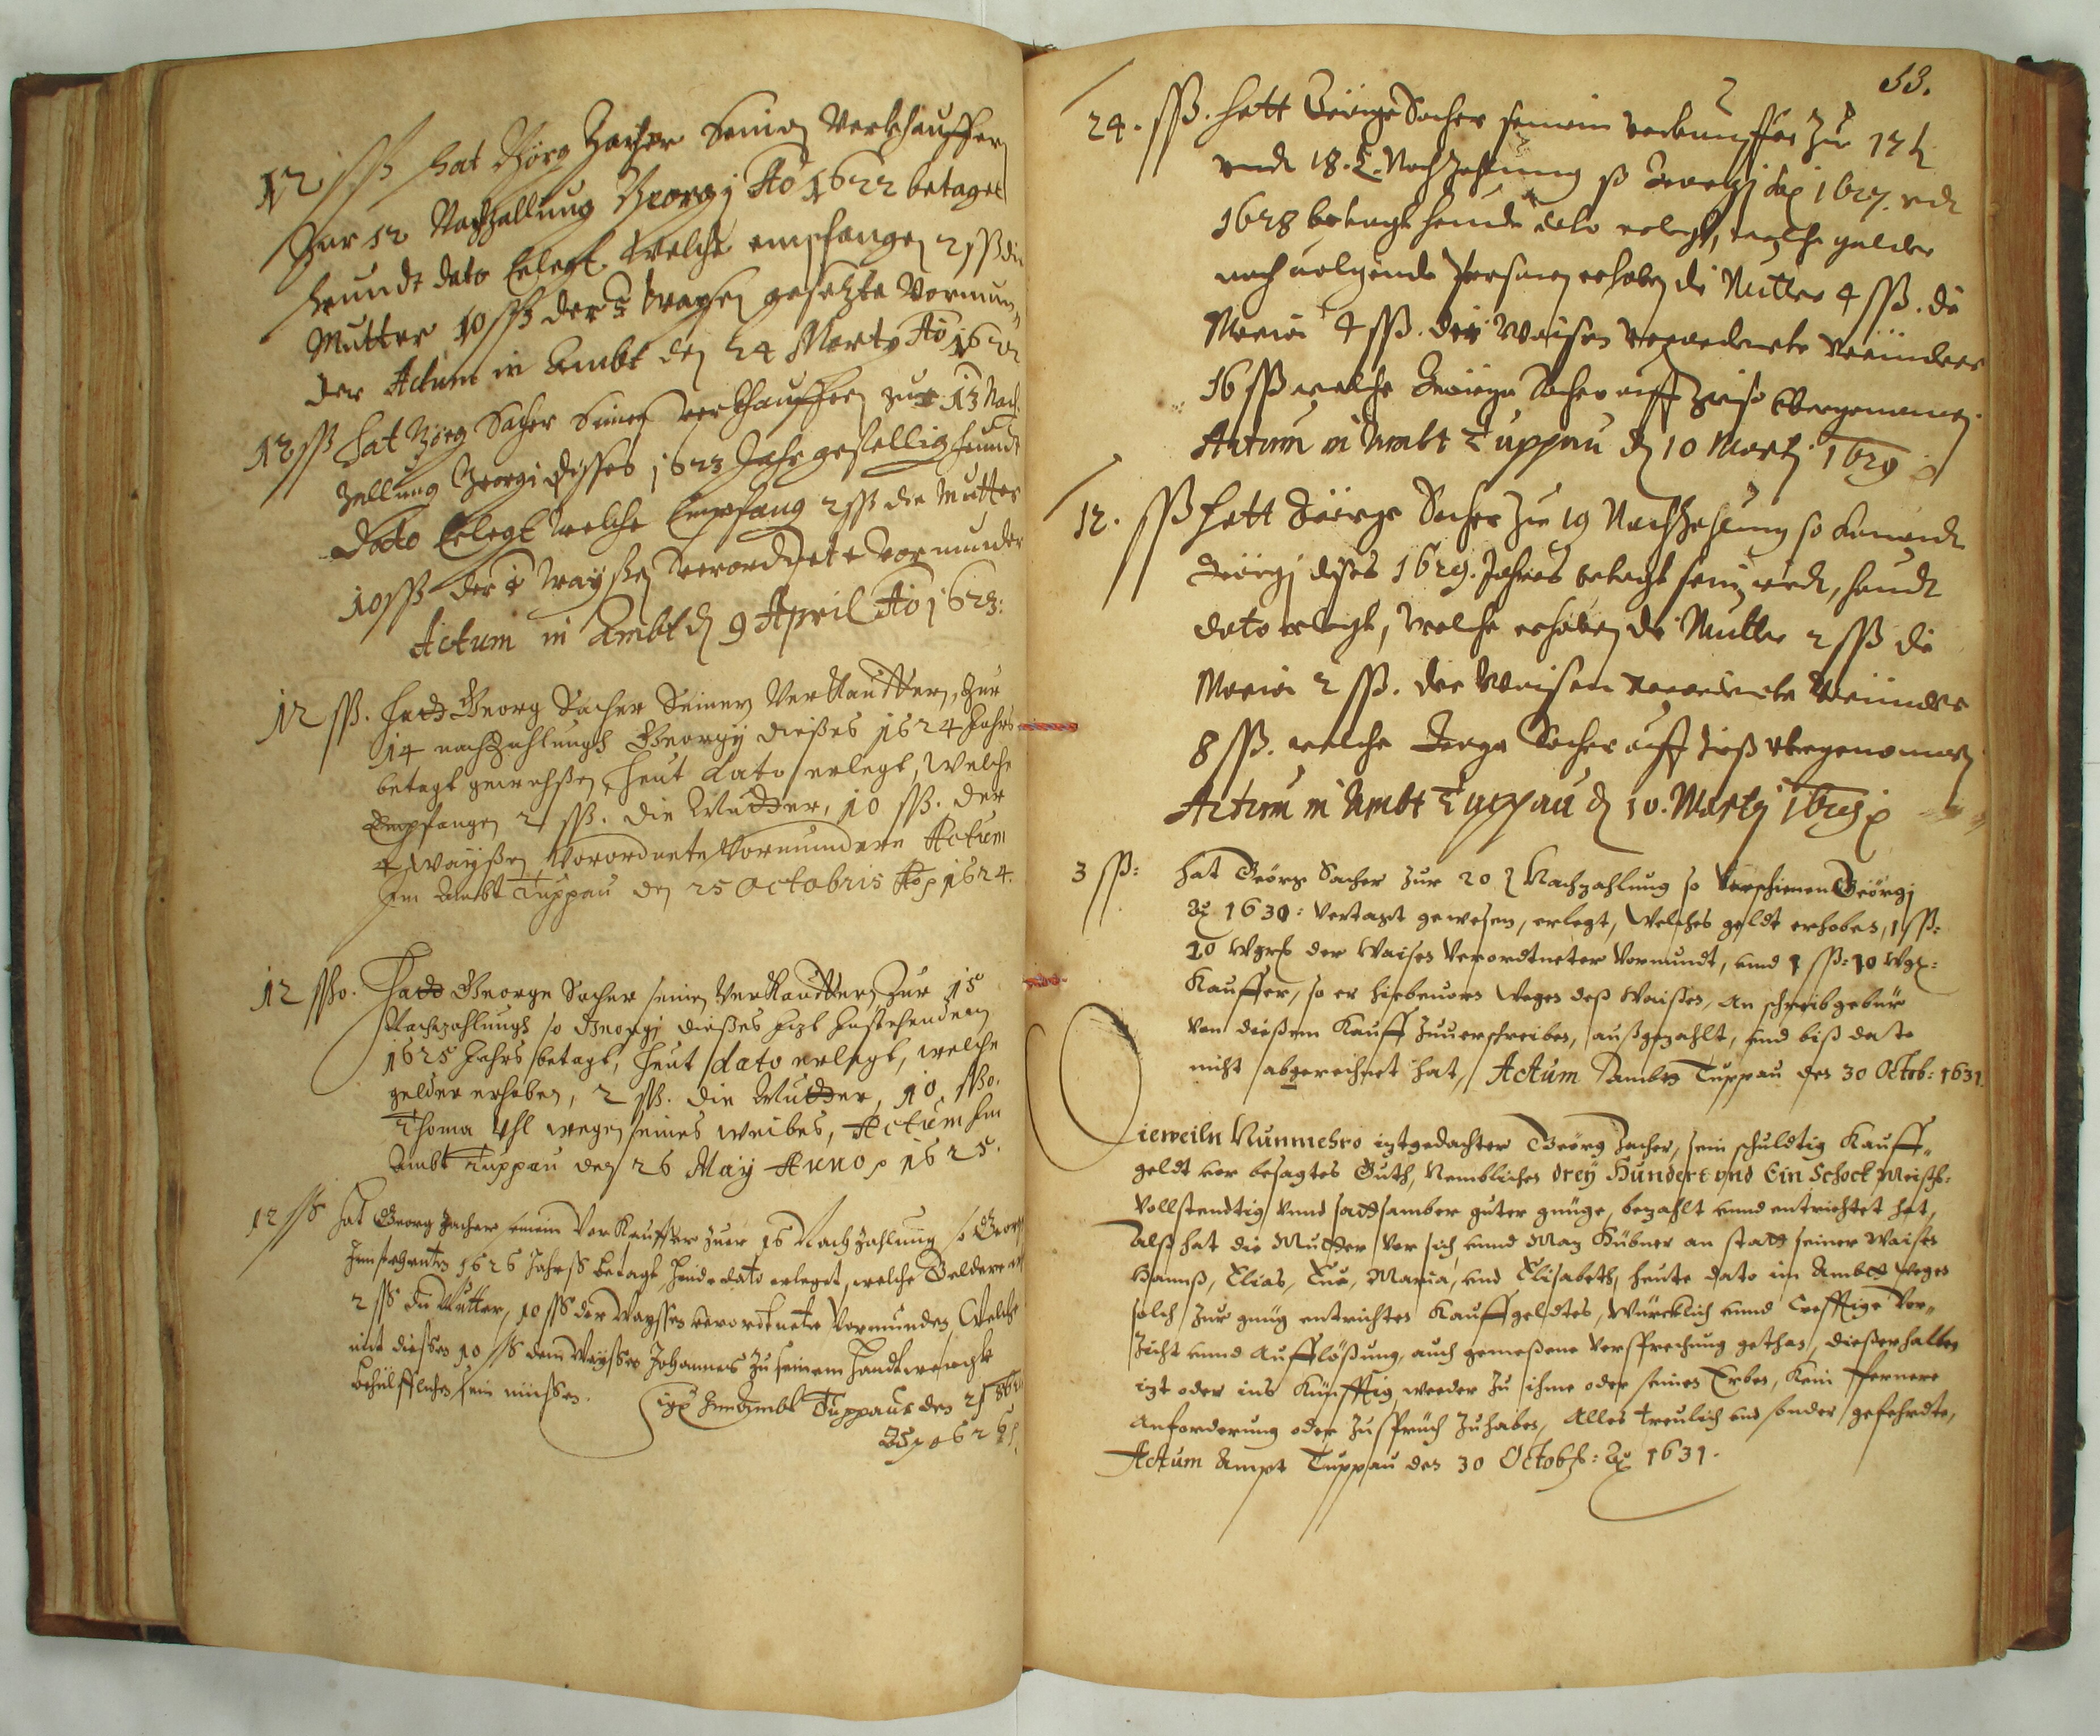 12 ßß hat Görg Zacher Seinen Verkhauffern
Zur 12 Nachzallung Georgy Ao 1622 betaget
heundt dato Erlegt welche empfangen 2 ßß die
Mutter 10 ßß der Waysen gesetzte Vormun=
der Actum in Ambt den 24 Marty Ao 1622
12 ßß hat Görg Sacher Seinen verkhauffern zur 13 Nach
Zallung Georgi disses 1623 Jahr gefellig heundt
dato Erlegt welche Empfang 2 ßß die Mutter
10 ßß der Wayßen verordnete Vormunder
Actum in Ambt dn 9 April Ao 1623:
12 ßß. Hatt Georg Sacher Seinen Verkauffern, Zur
14 nachzahlungk Georgy dießes 1624 Jahrs
betagt gewehßen, heut dato erlegt, welche
Empfangen 2 ßß. die Mutter, 10 ßß. der
4 Wayßen Verordnete Vormundere Actum
Im Ambt Tuppau den 25 Octobris Ao 1624.
12 ßßo. Hatt George Sacher seinen Verkauffern Zur 15
Nachzahlungk so Georgj dießes Itzt Instehenden
1625 Jahrs betagt, heut dato erlegt, welche
gelder erhoben, 2 ßß. die Mutter, 10 ßßo.
Thoma Uhl wegen seines weibes, Actum Im
Ambt Tuppau den 26 May Anno 1625.
12 ßß hat Georg Zacher seinem Verkauffer zuer 16 Nachzahlung so Georgy
Innstehenten 1626 Jahrß betagt heude dato erlegt, welche Geldere
2 ßß die Mutter, 10 ßß der Wayssen verordtnete Vormunden, Welche
mit diessen 10 ßß dem Waysen Johannes zu seinem handtwergk
behülfflichen sein müssen. Sigl. Im Ambt Tuppau den 21
1626.
53.
24. ßß. hatt Geörge Sacher seinem verkauffer zu 17
unde 18. Nachzehlung so Georgj 1627. vnd
1628 betagt heude dato erlegt, welche gelder
nach volgende Persanen erhoben die Mutter 4 ßß. die
Maria 4 ßß. der Waisen verordnete
16 ßß welche Geörge Sacher auff Zinß vbergenomen
Actum in Ambt Tuppau dn 10 Martj 1629
12. ßß hatt Geörge Sacher zu 19 Nachzehlung so
Geörgj dises 1629. Jahres betagt sein wird, heude
dato erlegt, welche erhoben die Mutter 2 ßß die
Maria 2 ßß. der Waisen verordnete
8 ßß. welche George Sacher auff Zinß vbergenomen
Actum in Ambt Tuppau dn 10. Martj 1629
3 ßß: hat Geörg Sacher zur 20 Nachzahlung so Verschienen Geörgj
Ao 1630: vertagt gewesen, erlegt, Welches geldt erhoben, 1 ßß:
10 Wgrl der Waisen Verordtneter Vormundt, und 1 ßß: 10 Wgl:
Kauffer, so er hiebeuorn Wegen deß Waisen, An schreibgebür
von dießem Kauff Zuuerschreiben, außgezahlt, und biß dato
nicht abgerechnet hat, Actum Ambts Tuppau den 30 Octob: 1631.
Dieweiln Nunmehro itztgedachter Geörg Zacher, sein schuldig Kauff-
geldt vor besagtes Guth, Nemblichen drey Hundert vnd Ein Schock Meißl:
Vollstendtig unnd sattsamber guter gnüge, bezahlt unnd entrichtet hat,
Alß hat die Mutter Vor sich unnd Max Hübner an statt seiner Waisen
Hannß, Elias, Eua, Maria, und Elisabeth, heute dato im Ambtt Wegen
solch Zur gnüg entrichten Kauffgeldtes, Würcklich unnd Crefftige Ver-
Zicht unnd Aufflößung, auch gemeßene Versprechung gethan, dießerhalben
itzt oder ins Künfftig, weeder Zu ihme oder seinen Erben, Kein Fernere
Anforderung oder Zuspruch Zuhaben, Alles treulich und sonder gefehrde,
Actum Ampt Tuppau den 30 Octobl: Ao 1631.